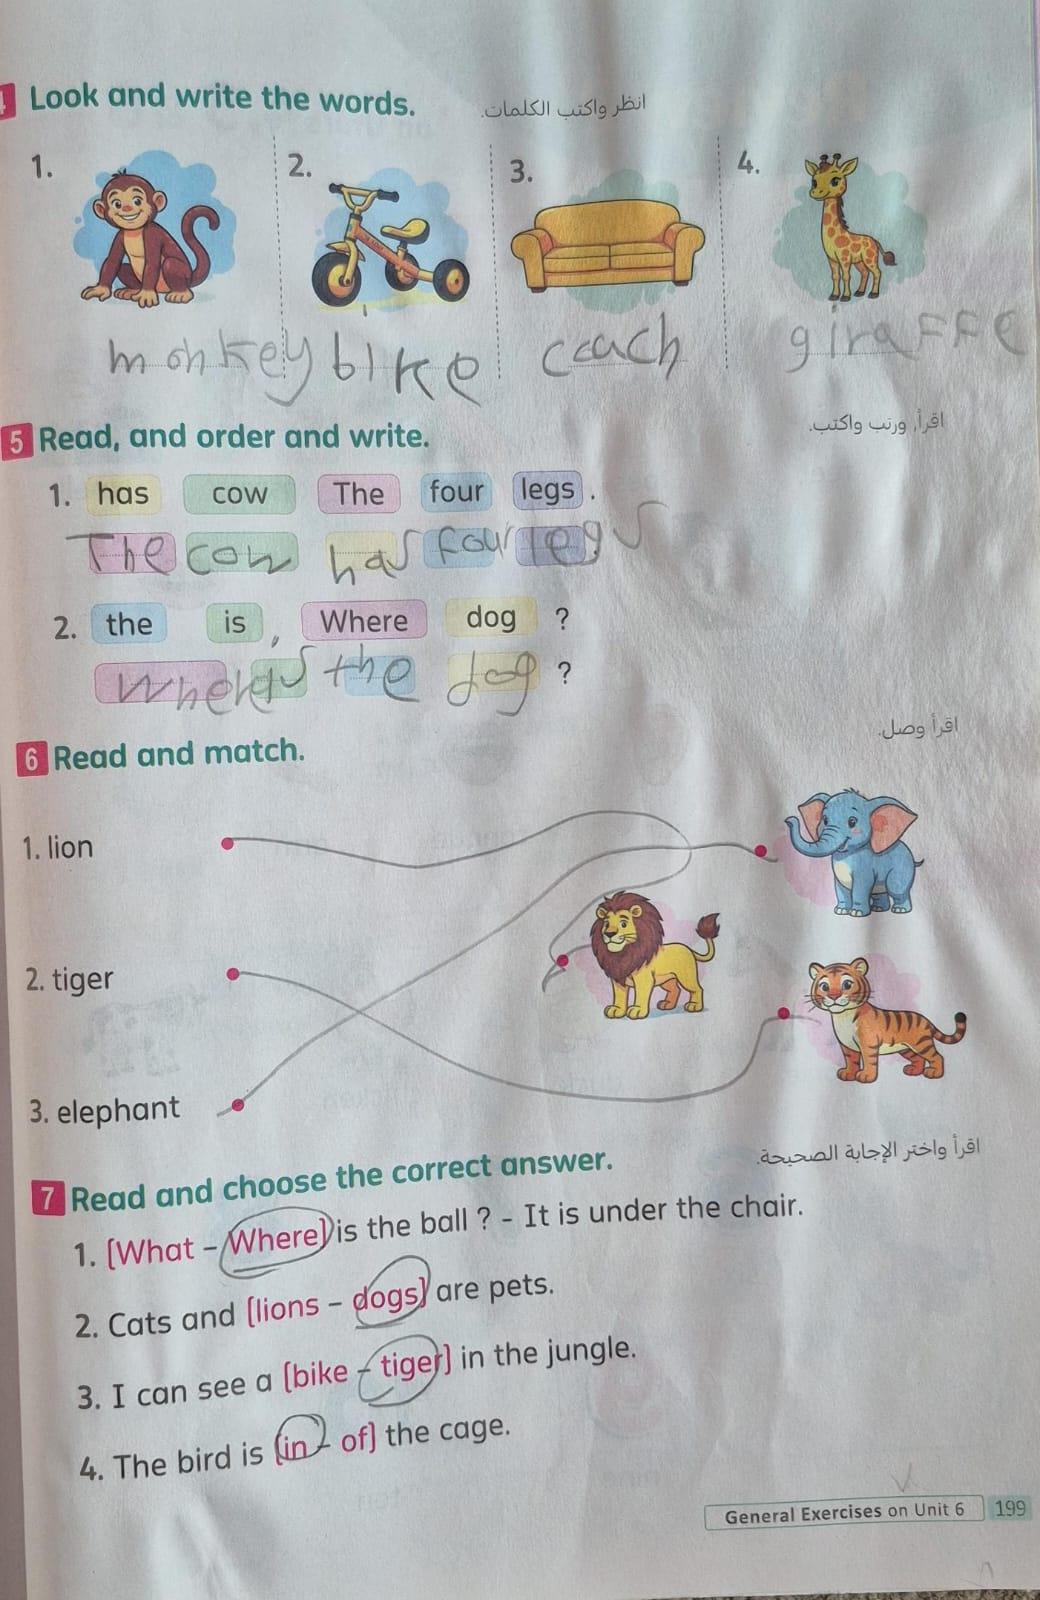 4 Look and write the words. انظر واكتب الكلمات.
1. 2. 3. 4.
monkey bike coach giraFFe
5 Read, and order and write. اقرأ, ورتب واكتب.
1. has cow The four legs .
The cow has four legs .
2. the is , Where dog ?
Where is the dog ?
6 Read and match. اقرأ وصل.
1. lion
2. tiger
3. elephant
7 Read and choose the correct answer. اقرأ واختر الإجابة الصحيحة.
1. (What – Where) is the ball ? - It is under the chair.
2. Cats and (lions – dogs) are pets.
3. I can see a (bike – tiger) in the jungle.
4. The bird is (in – of) the cage.
General Exercises on Unit 6 199